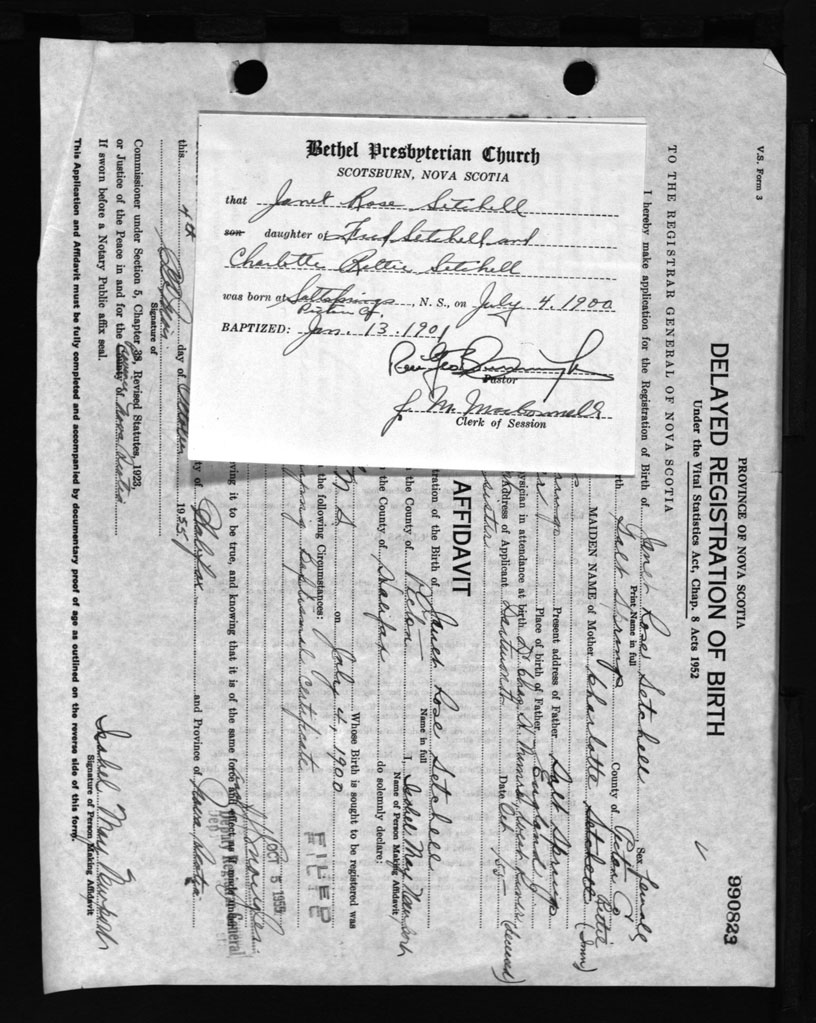 Bethel Presbyterian Church
SCOTSBURN, NOVA SCOTIA
that Janet Rose Setchell
son daughter of Fred Setchell and
Charlotte Rettie Setchell
was born at Saltsprings, N. S., on July 4, 1900
Pictou Co.
BAPTIZED: Jan. 13, 1901
Rev Geo
Pastor
J. M.
Clerk of Session
V.S. Form 3
990823
PROVINCE OF NOVA SCOTIA
DELAYED REGISTRATION OF BIRTH
Under the Vital Statistics Act, Chap. 8 Acts 1952
TO THE REGISTRAR GENERAL OF NOVA SCOTIA
I hereby make application for the Registration of Birth of Janet Rose Setchell Sex Female
Print Name in full
Salt Springs County of Pictou Co
MAIDEN NAME of Mother Charlotte Setchell Rettie
Present address of Father Salt Springs
Place of birth of Father England
physician in attendance at birth (deceased)
Address of Applicant Dartmouth Date Oct
sister
AFFIDAVIT
tration of the Birth of Janet Rose Setchell
Name in full
n the County of Pictou I, Isabel May Newport
Name of Person Making Affidavit,
the County of Halifax do solemnly declare:
Whose Birth is sought to be registered was
N.S. on July 4, 1900
n the following Circumstances:
Baptismal Certificate
FILED
eving it to be true, and knowing that it is of the same force and effect as if made under
OCT 5 1955
Deputy Registrar General
ty of Halifax and Province of Nova Scotia
this 4th day of October 1955
Signature of
Isabel May Newport
Signature of Person Making Affidavit
Commissioner under Section 5, Chapter 38, Revised Statutes, 1923,
or Justice of the Peace in and for the County of Nova Scotia
If sworn before a Notary Public affix seal.
This Application and Affidavit must be fully completed and accompanied by documentary proof of age as outlined on the reverse side of this form.